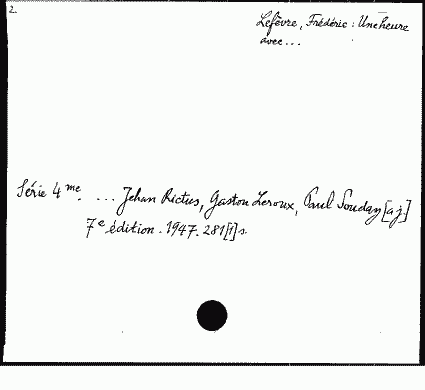 2.
Lefèvre, Frédéric : Une heure
avec...
Série 4me. ... Jehan Rictus, Gaston Leroux, Paul Souday [aj]
7e édition. 1947. 281[1] s.